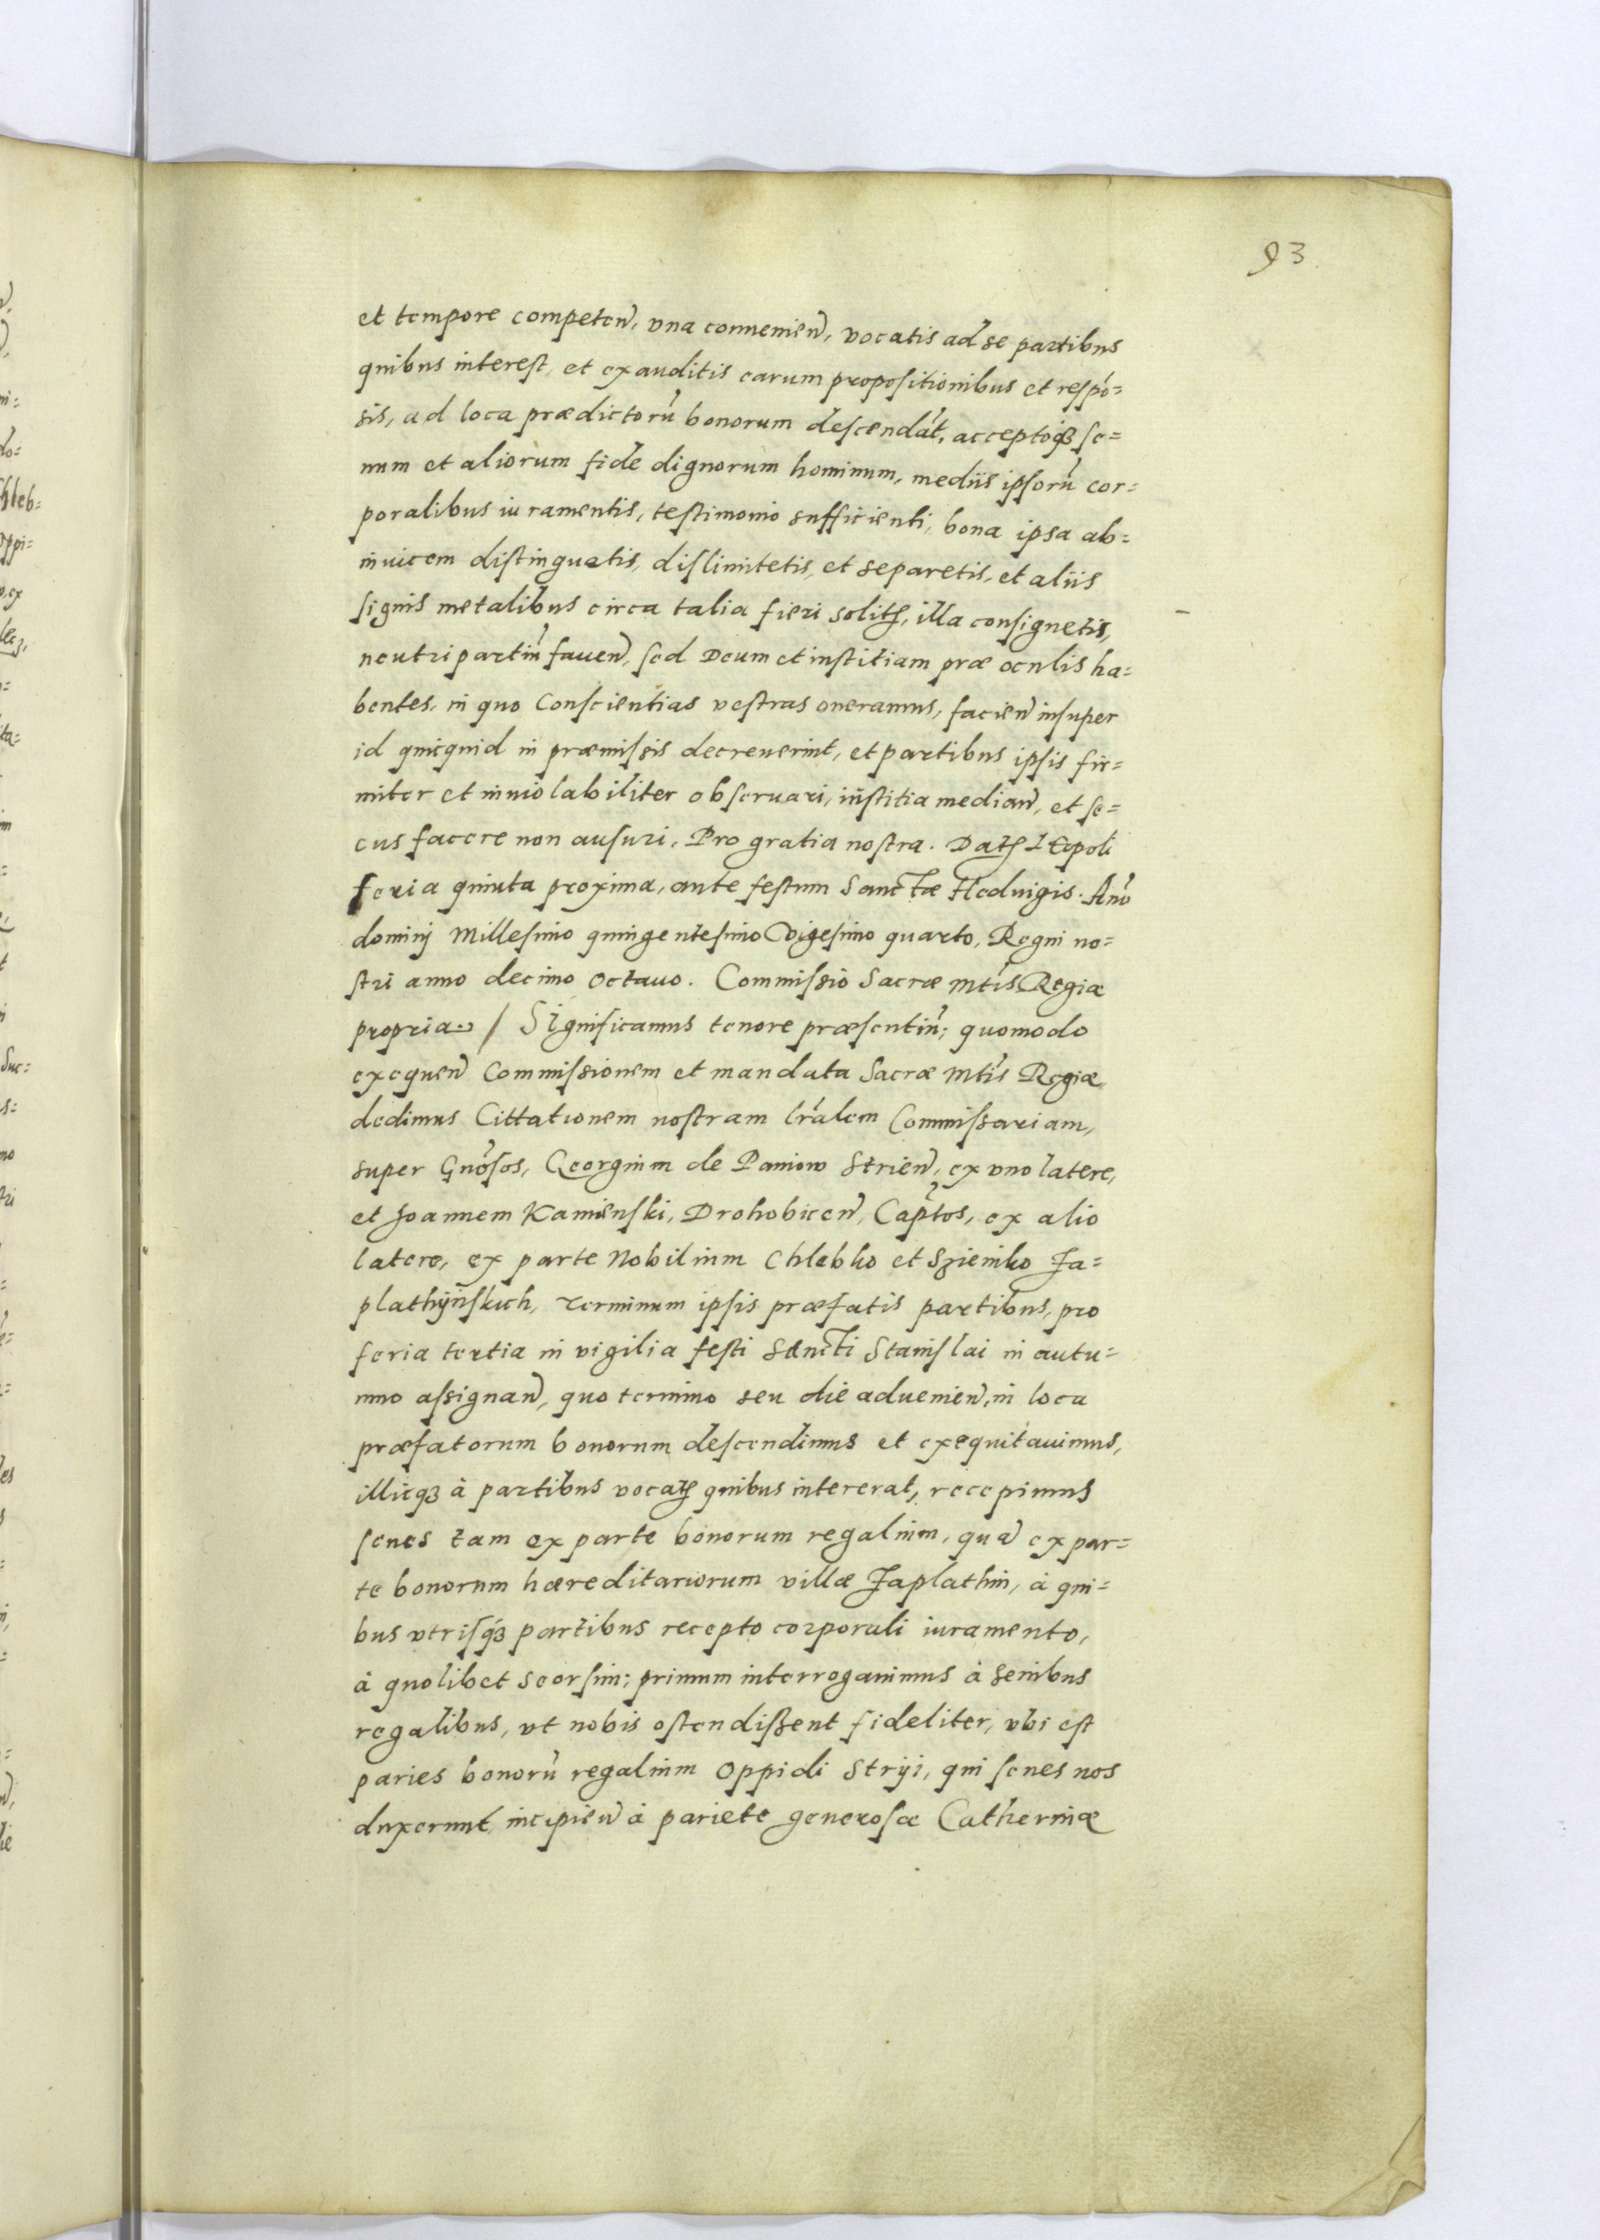 93
et tempore competen̄, vna conuenien̄, vocatis ad se partibus
quibus interest, et exauditis earum propositionibus et respó=
sis, ad loca prædictorū bonorum descendāt, acceptoq₃ se=
num et aliorum fide dignorum hominum, mediis ipsorū cor=
poralibus iuramentis, testimonio sufficienti, bona ipsa ab=
inuicem distinguatis, dislimitetis, et separetis, et aliis
signis metalibus circa talia fieri solitꝭ, illa consignetis,
neutri partiū fauen̄, sed Deum et iustitiam præ oculis ha=
bentes, in quo Conscientias vestras oneramus, facien̄ insuper
id quicquid in præmissis decreuerint, et partibus ipsis fir=
miter et inuiolabiliter obseruari, iustitia median̄, et se=
cus facere non ausuri, Pro gratia nostra. Datꝭ Leopoli
feria quinta proxima, ante festum Sanctæ Heduigis. Anō
dominj Millesimo quingentesimo Vigesimo quarto, Regni no=
stri anno decimo Octauo. Commissio Sacræ Mtīs Regiæ
propria. / Significamus tenore præsentiū; quomodo
exequen̄ Commissionem et mandata Sacræ Mtīs Regiæ,
dedimus Cittationem nostram lr̄alem Commissariam,
super Gn̄osos, Georgium de Paniow Strien̄, ex vno latere,
et Joannem Kamienski, Drohobicen̄, Capt̄os, ex alio
latere, ex parte Nobilium Chlebko et Szienko Ja=
plathÿnskich, Terminum ipsis præfatis partibus, pro
feria tertia in vigilia festi Sancti Stanislai in autu=
mno assignan̄, quo termino seu die aduenien̄, in loca
præfatorum bonorum descendimus et exequitauimus,
illicq₃ à partibus vocatꝭ quibus intererat, recepimus
senes tam ex parte bonorum regalium, quā ex par=
te bonorum hæreditariorum villæ Japlathin, à qui=
bus vtrisq₃ partibus recepto corporali iuramento,
à quolibet seorsim; primum interrogauimus à senibus
regalibus, vt nobis ostendissent fideliter, vbi est
paries bonorū regalium Oppidi Stryi, qui senes nos
duxerunt incipien̄ à pariete generosæ Catherinæ